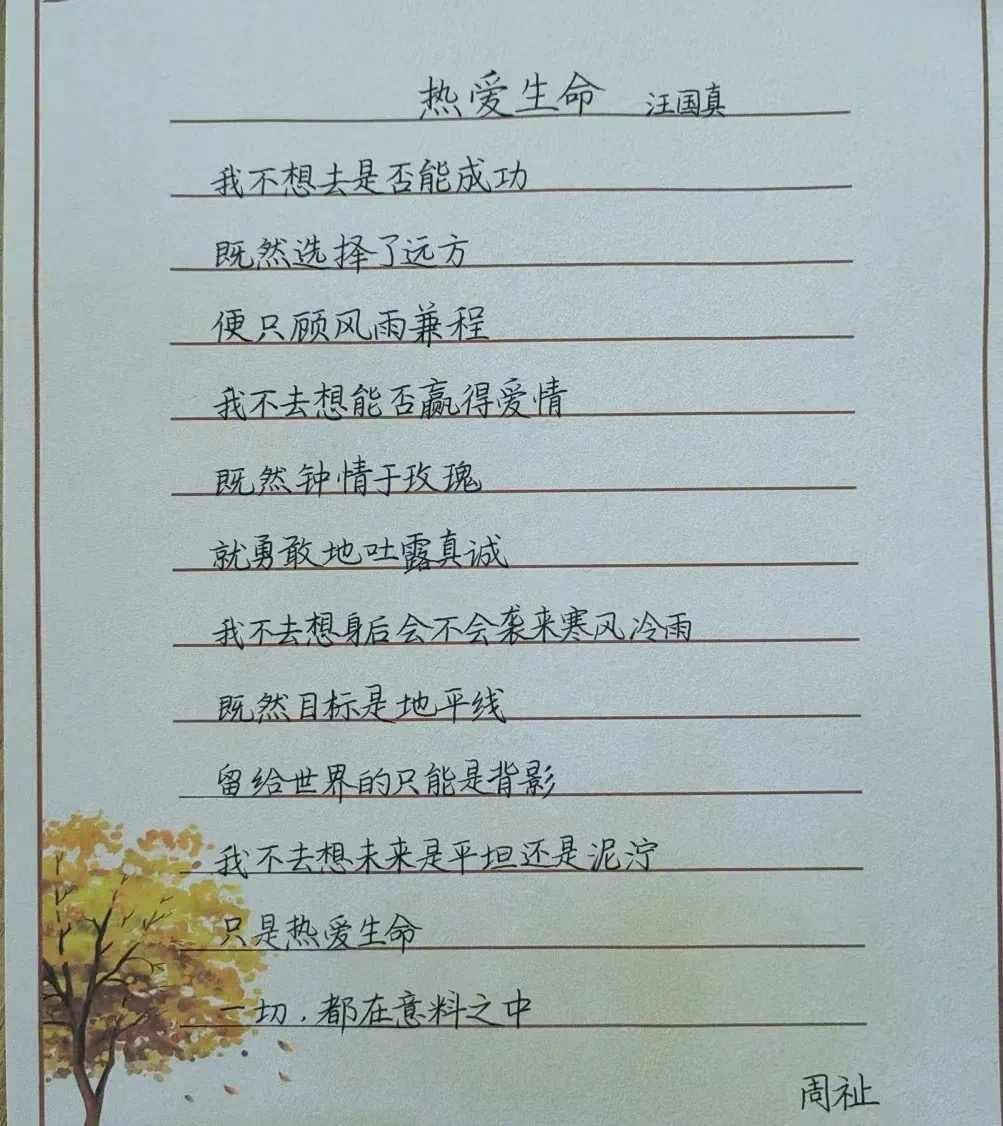 热爱生命 汪国真
我不想去是否能成功
既然选择了远方
便只顾风雨兼程
我不去想能否赢得爱情
既然钟情于玫瑰
就勇敢地吐露真诚
我不去想身后会不会袭来寒风冷雨
既然目标是地平线
留给世界的只能是背影
我不去想未来是平坦还是泥泞
只是热爱生命
一切，都在意料之中
周祉